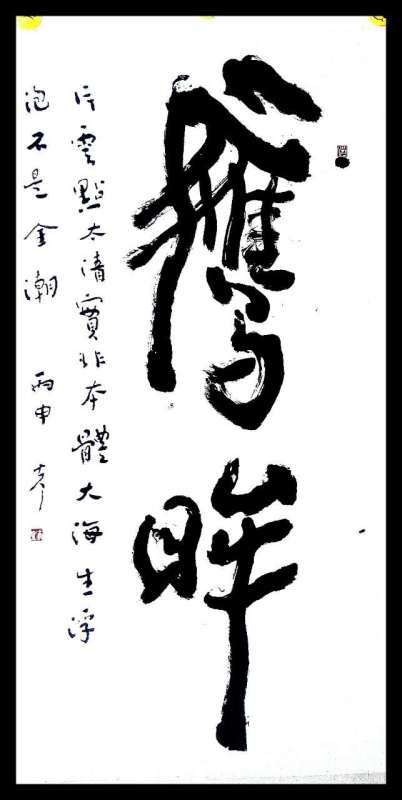 鷹眸
片雲點太清實非本體大海生浮
泡不是全潮 丙申